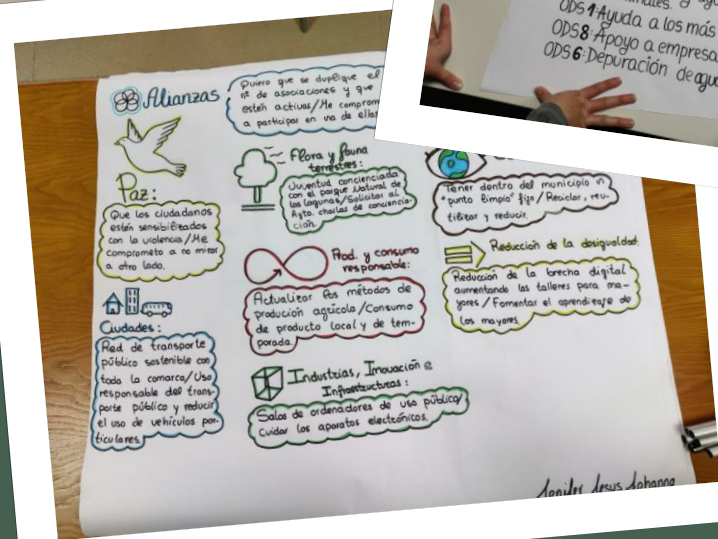 ODS 1: Ayuda a los más
ODS 8: Apoyo a empresa
ODS 6: Depuración de agu
Alianzas
Quiero que se duplique el
nº de asociaciones y que
estén activas/Me comprom
a participar en una de ellas
Paz:
Que los ciudadanos
estén sensibilizados
con la violencia/Me
comprometo a no mirar
a otro lado.
Ciudades:
Red de transporte
público sostenible con
toda la comarca/Uso
responsable del trans-
porte público y reducir
el uso de vehículos par-
ticulares.
Flora y fauna
terrestres:
Juventud concienciada
con el parque Natural de
las lagunas/Solicitar al
Ayto. charlas de conciencia-
ción.
Prod. y consumo
responsable:
Actualizar los métodos de
produción agrícola/Consumo
de producto local y de tem-
porada.
Industrias, Innovación e
Infraestructuras:
Salas de ordenadores de uso público/
cuidar los aparatos electrónicos.
Tener dentro del municipio un
"punto limpio" fijo/Reciclar, reu-
tilizar y reducir.
Reducción de la desigualdad:
Reducción de la brecha digital
aumentando los talleres para ma-
yores/Fomentar el aprendizaje de
los mayores.
Jesus Johanna